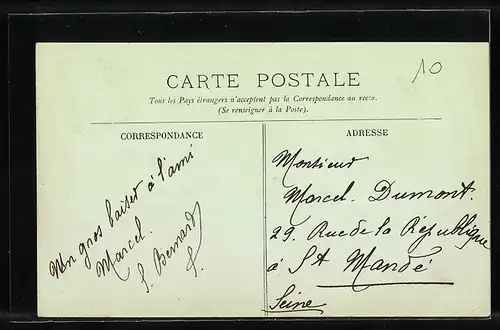 10
CARTE POSTALE
Tous les Pays étrangers n'acceptent pas la Correspondance au recto.
(Se renseigner à la Poste).
CORRESPONDANCE
Un gros baiser à l'ami
Marcel.
S. Bernard
S.
ADRESSE
Monsieur
Marcel. Dumont.
29. Rue de la République
à St Mandé
Seine